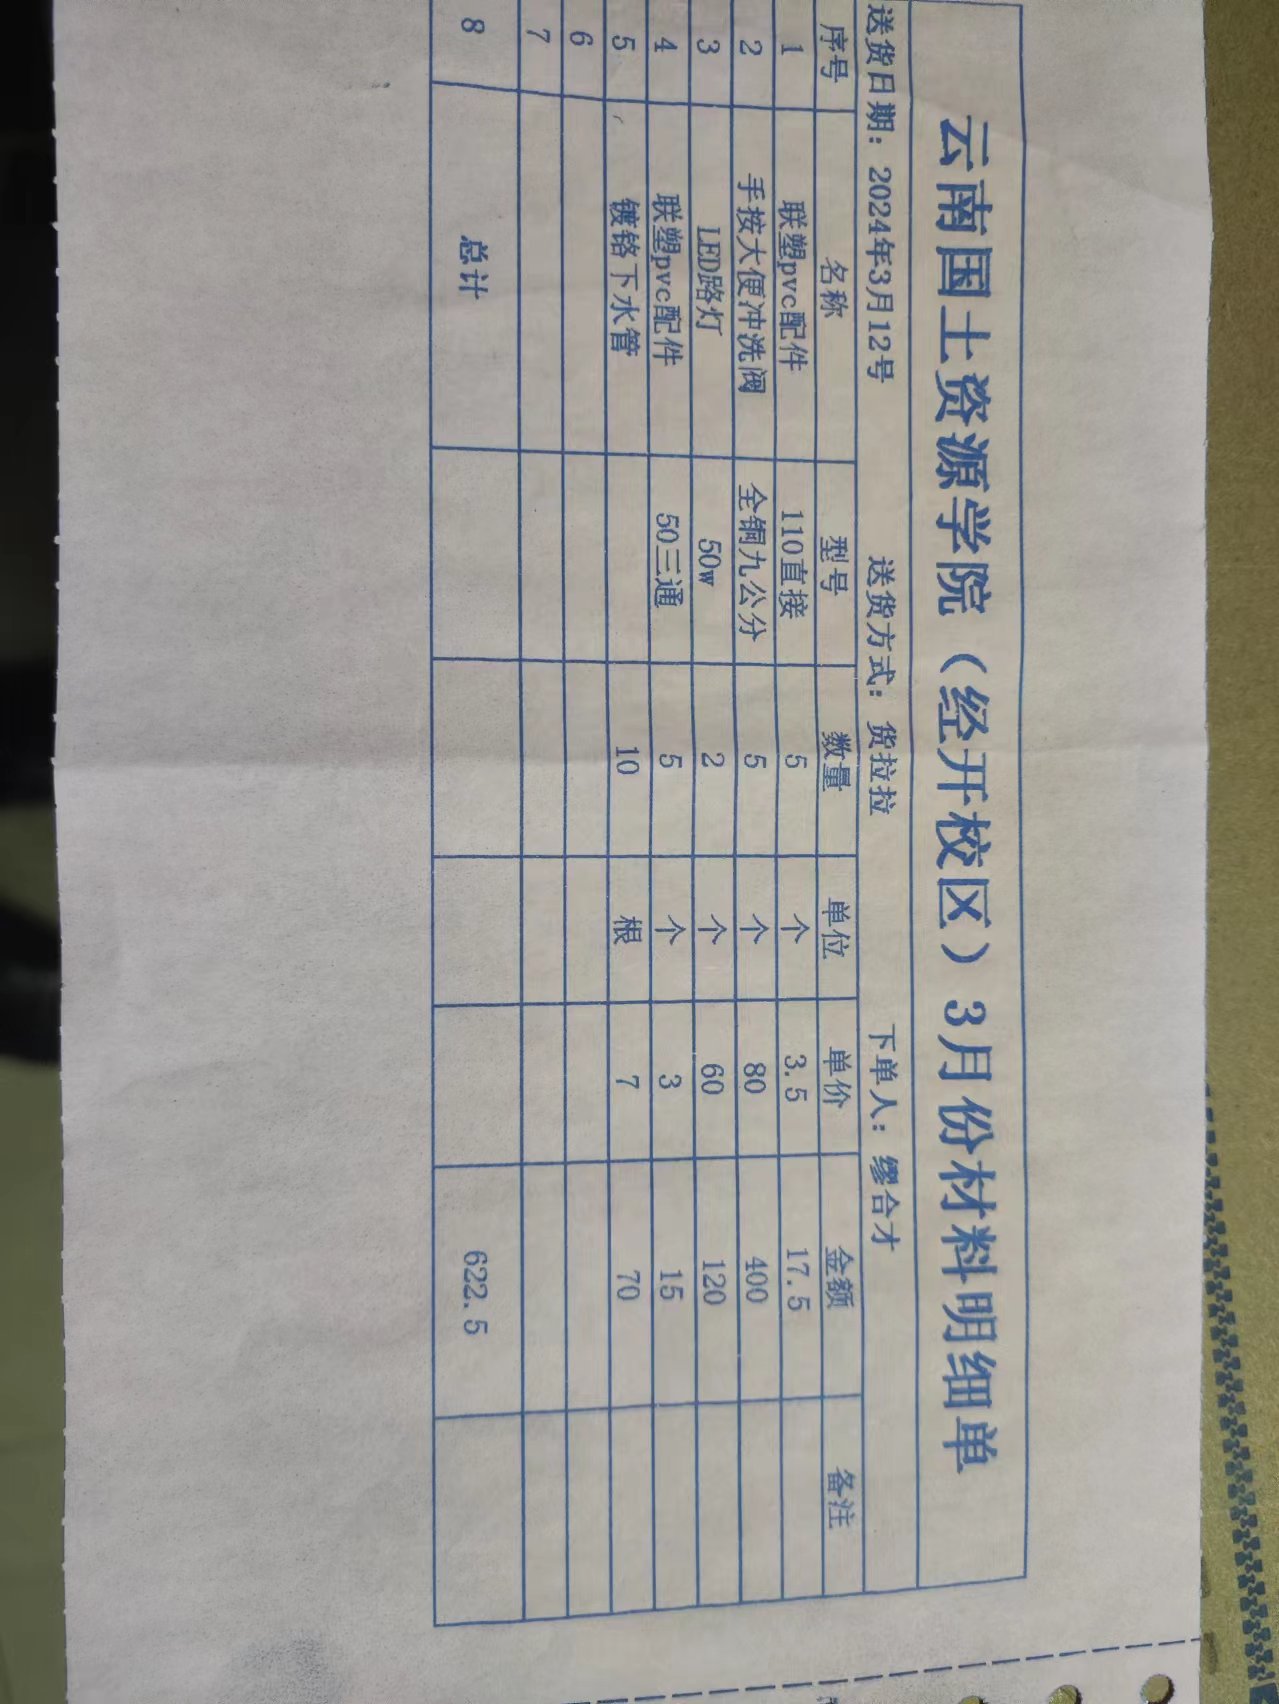 云南国土资源学院（经开校区）3月份材料明细单
送货日期：2024年3月12号 送货方式：货拉拉 下单人：缪合才
序号 名称 型号 数量 单位 单价 金额 备注
1 联塑pvc配件 110直接 5 个 3.5 17.5
2 手按大便冲洗阀 全铜九公分 5 个 80 400
3 LED路灯 50w 2 个 60 120
4 联塑pvc配件 50三通 5 个 3 15
5 镀铬下水管 10 根 7 70
6
7
8 总计 622.5